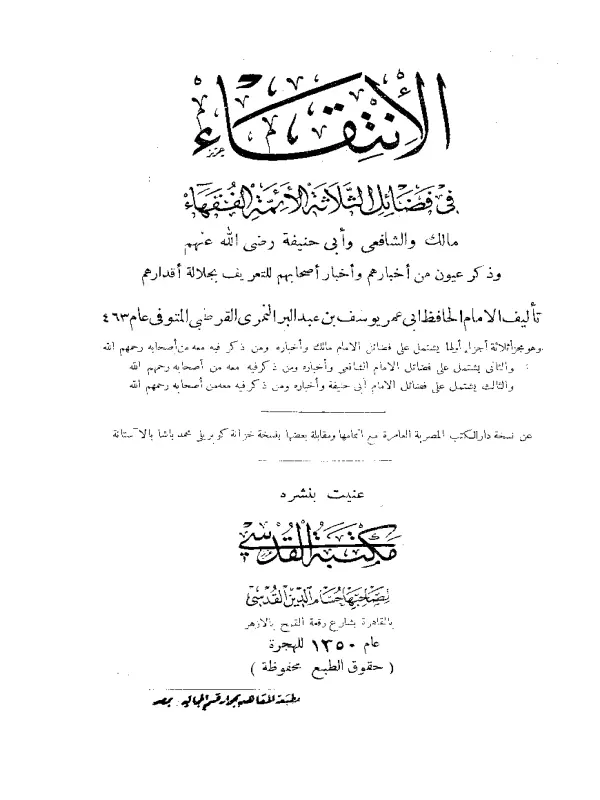 الإنتقاء
في فضائل الثلاثة الأئمة الفقهاء
مالك والشافعي وأبي حنيفة رضى الله عنهم
وذكر عيون من أخبارهم وأخبار أصحابهم للتعريف بجلالة أقدارهم
تأليف الامام الحافظ ابى عمر يوسف بن عبد البر النمرى القرطبي المتوفى عام ٤٦٣
وهو مجزأ ثلاثة أجزاء أولها يشتمل على فضائل الامام مالك وأخباره ومن ذكر فيه معه من أصحابه رحمهم الله
والثانى يشتمل على فضائل الامام الشافعى وأخباره ومن ذكر فيه معه من أصحابه رحمهم الله
والثالث يشتمل على فضائل الامام أبى حنيفة وأخباره ومن ذكر فيه معه من أصحابه رحمهم الله
عن نسخة دار الكتب المصرية العامرة مع اتمامها ومقابلة بعضها بنسخة خزانة كوبريلى محمد باشا بالآستانة
عنيت بنشره
مكتبة القدسي
لصاحبها حسام الدين القدسي
بالقاهرة بشارع رقعة القمح بالازهر
عام ١٣٥٠ للهجرة
( حقوق الطبع محفوظة )
مطبعة المعاهد بجوار قسم الجمالية بمصر